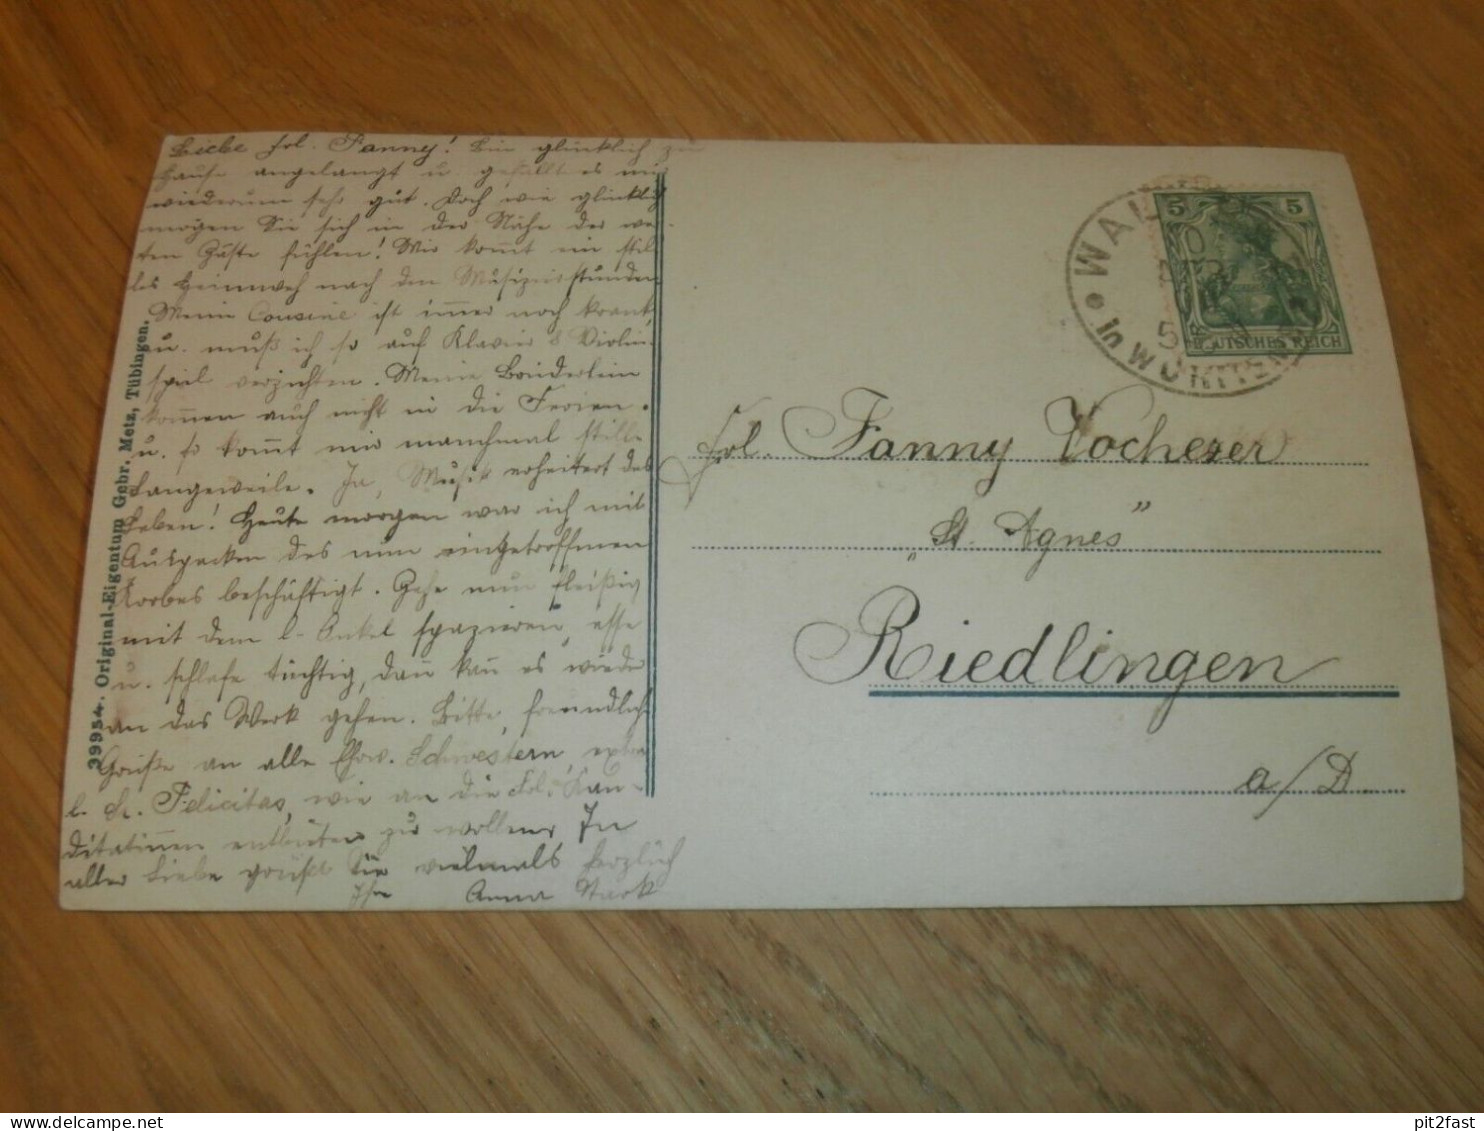 Liebe Frl. Fanny! Bin glücklich zu
Hause angelangt u. gefällt es mir
wiederum sehr gut. Doch wie glücklich
mögen Sie sich in der Nähe der wer-
ten Gäste fühlen! Mir kommt ein stil-
les Heimweh nach den Musizierstunden
Meine Cousine ist immer noch krank,
u. muß ich so auf Klavier & Violin-
spiel verzichten. Meine Brüderlein
kommen auch nicht in die Ferien.
u. so kommt mir manchmal stille
Langeweile. Ja, Musik erheitert das
Leben! Heute morgen war ich mit
Auspacken des nun eingetroffenen
Korbes beschäftigt. Gehe nun fleißig
mit dem l. Onkel spazieren, esse
u. schlafe tüchtig, dann kann es wieder
an das Werk gehen. Bitte, freundliche
Grüße an alle Ehrw. Schwestern, extra
l. Sr. Felicitas, wie an die Frl. Kan-
ditatinnen entbieten zu wollen. In
aller Liebe grüßt Sie vielmals herzlich
Ihre Anna Stark
39954. Original-Eigentum Gebr. Metz, Tübingen.
5 5
DEUTSCHES REICH
in WÜRTTEMB.
Frl. Fanny Vochezer
„St. Agnes"
Riedlingen
a/D.
pit2fast